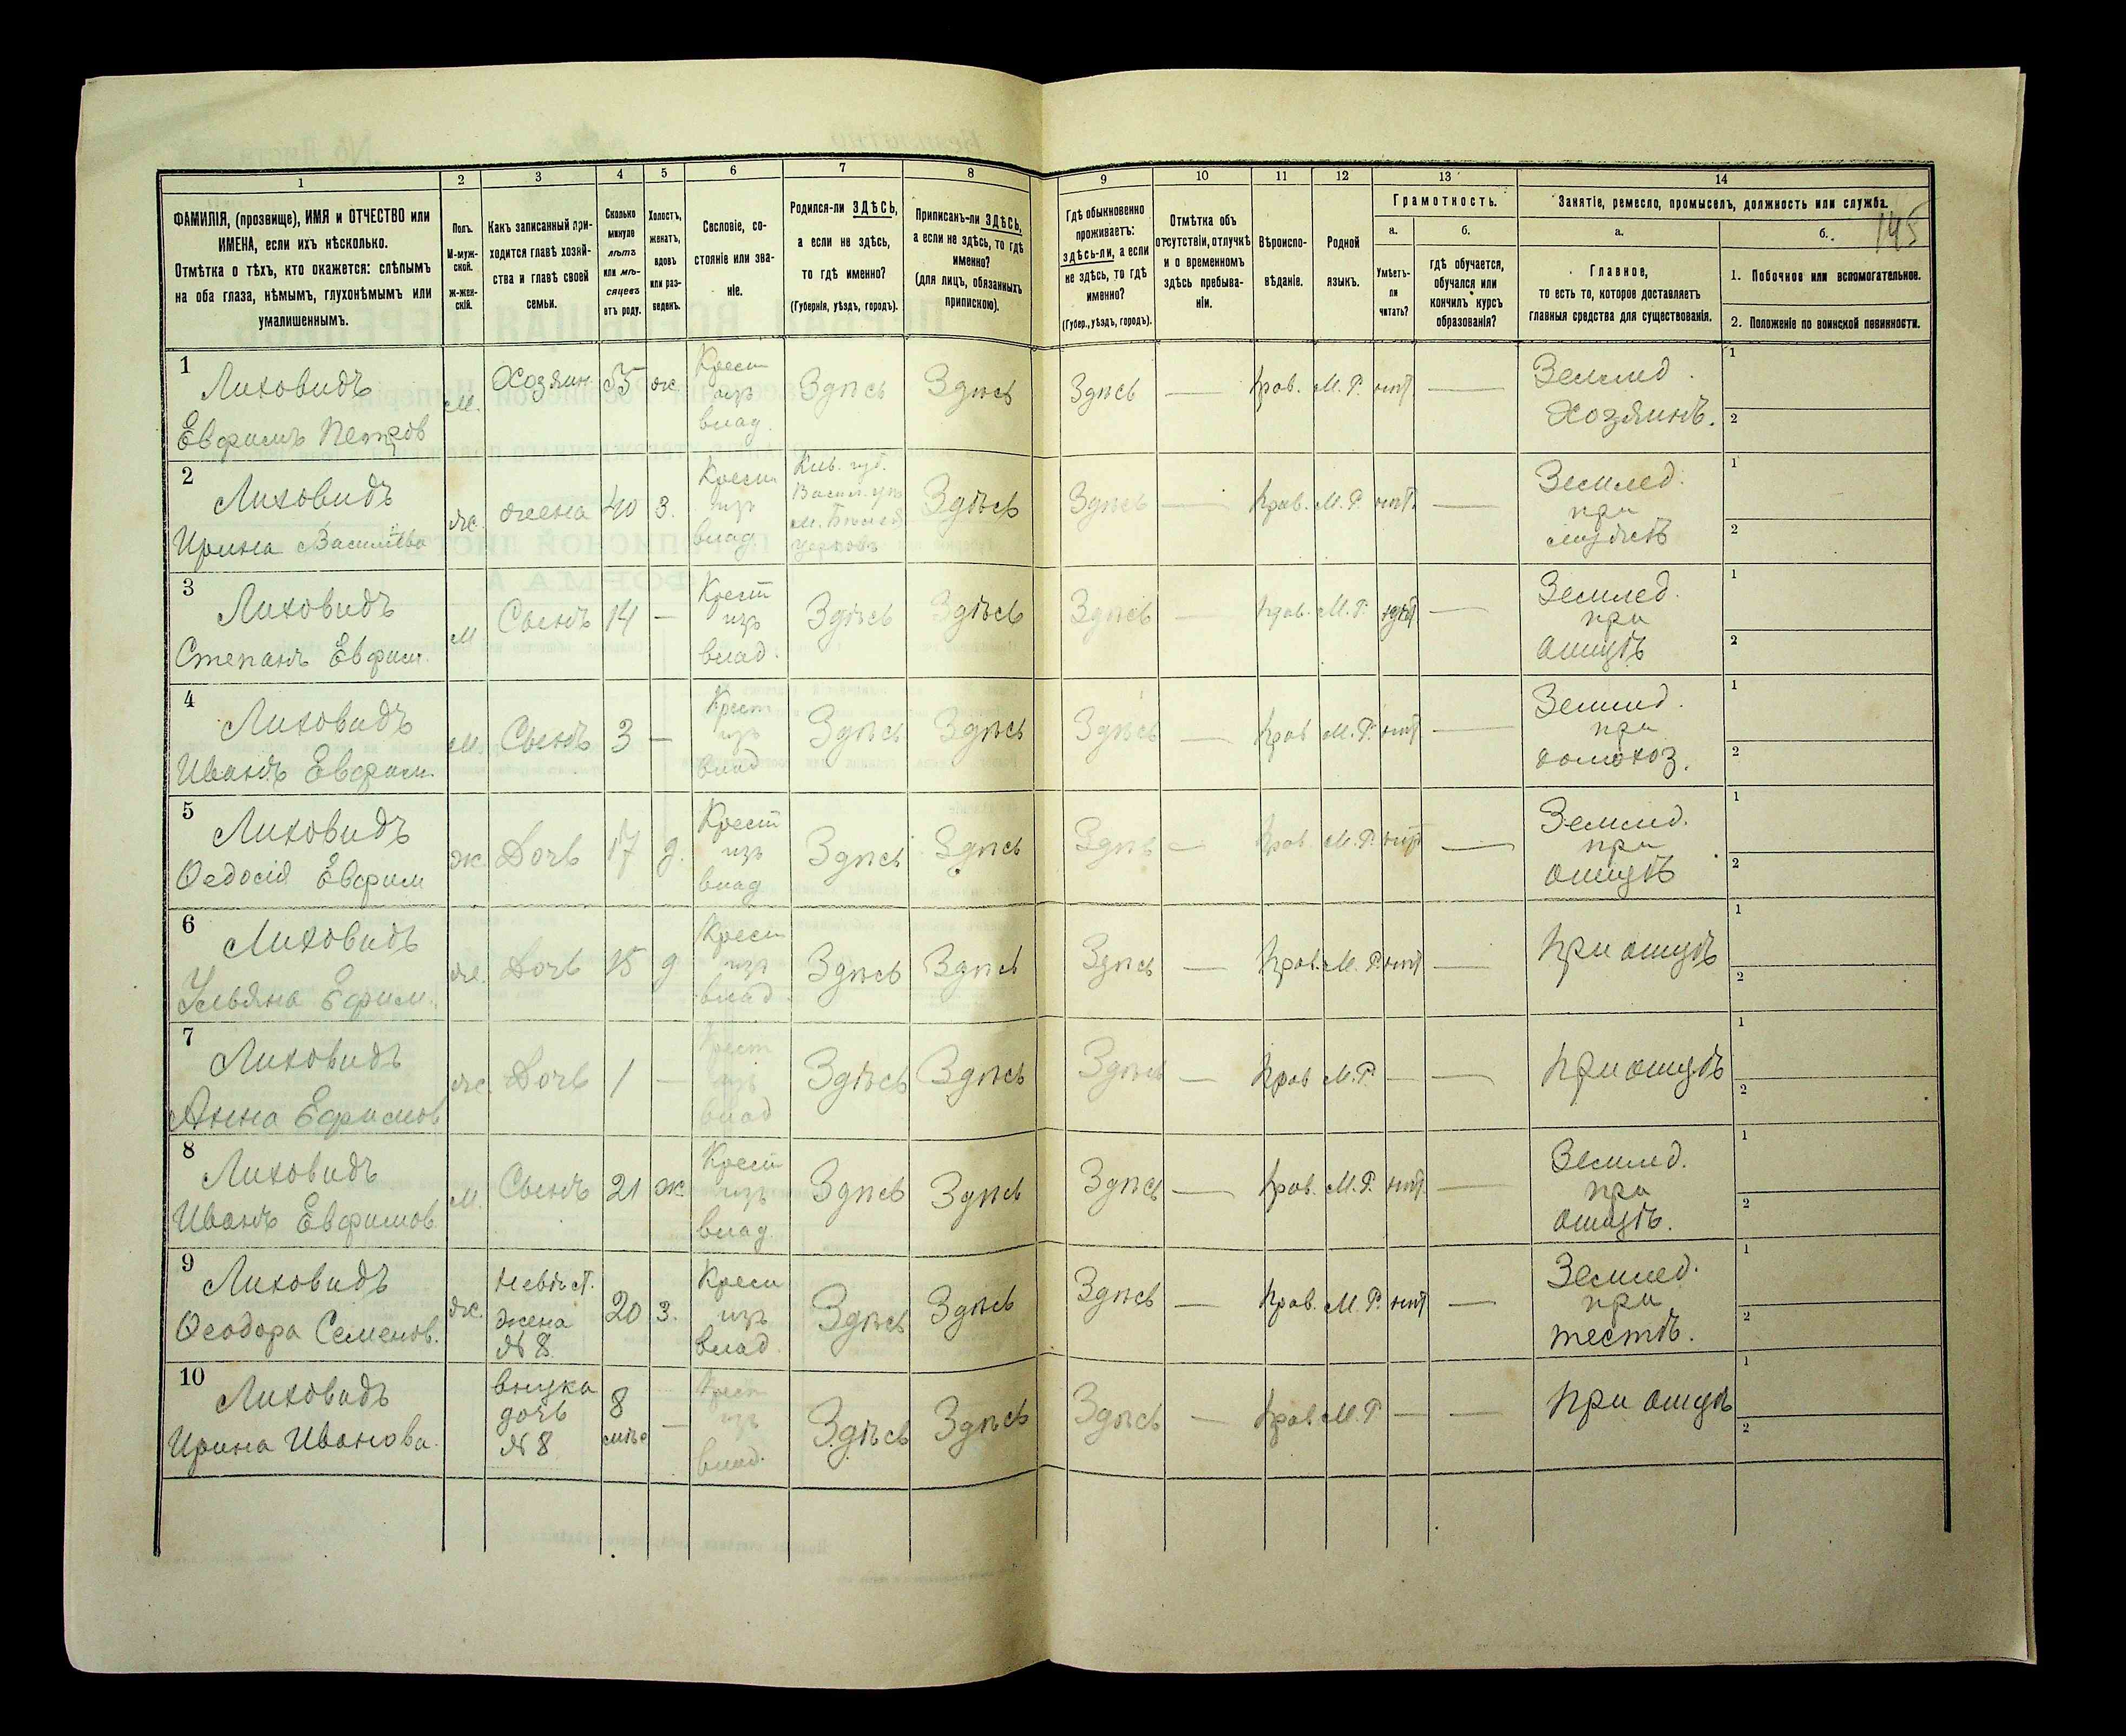 1 2 3 4 5 6 7 8 9 10 11 12 13 14
ФАМИЛІЯ, (прозвище), ИМЯ и ОТЧЕСТВО или
ИМЕНА, если ихъ нѣсколько.
Отмѣтка о тѣхъ, кто окажется: слѣпымъ
на оба глаза, нѣмымъ, глухонѣмымъ или
умалишеннымъ.
Полъ.
М-муж-
ской.
Ж-жен-
скій.
Какъ записанный при-
ходится главѣ хозяй-
ства и главѣ своей
семьи.
Сколько
минуло
лѣтъ
или мѣ-
сяцевъ
отъ роду.
Холостъ,
женатъ,
вдовъ
или раз-
веденъ.
Сословіе, со-
стояніе или зва-
ніе.
Родился-ли ЗДѢСЬ,
а если не здѣсь,
то гдѣ именно?
(Губернія, уѣздъ, городъ).
Приписанъ-ли ЗДѢСЬ,
а если не здѣсь, то гдѣ
именно?
(для лицъ, обязанныхъ
припискою).
Гдѣ обыкновенно
проживаетъ:
здѣсь-ли, а если
не здѣсь, то гдѣ
именно?
(Губер., уѣздъ, городъ).
Отмѣтка объ
отсутствіи, отлучкѣ
и о временномъ
здѣсь пребыва-
ніи.
Вѣроиспо-
вѣданіе.
Родной
языкъ.
Грамотность.
а.
Умѣетъ-
ли
читать?
б.
гдѣ обучается,
обучался или
кончилъ курсъ
образованія?
Занятіе, ремесло, промыселъ, должность или служба.
145
а.
Главное,
то есть то, которое доставляетъ
главныя средства для существованія.
б.
1. Побочное или вспомогательное.
2. Положеніе по воинской повинности.
1
Лиховидъ
Евфимъ Петров
м.
Хозяин
55
ж
Крест
изъ
влад.
Здѣсь
Здѣсь
Здѣсь
—
Прав.
М. Р.
нѣт
—
Землед.
Хозяинъ.
1
2
2
Лиховидъ
Ирина Васильева
ж.
жена
40
з.
Крест
изъ
влад.
Кив. губ.
Васил. уѣз
м. Бѣлой
Церковь
Здѣсь
Здѣсь
—
Прав.
М. Р.
нѣт.
—
Землед.
при
мужѣ
1
2
3
Лиховидъ
Степанъ Евфим.
м
Сынъ
14
—
Крест
изъ
влад.
Здѣсь
Здѣсь
Здѣсь
—
Прав.
М. Р.
нѣт
—
Землед.
при
отцѣ
1
2
4
Лиховидъ
Иванъ Евфим.
м.
Сынъ
3
—
Крест
изъ
влад
Здѣсь
Здѣсь
Здѣсь
—
Прав
М. Р.
нѣт
—
Землед.
при
домохоз.
1
2
5
Лиховидъ
Ѳедосія Евфим
ж
Дочь
17
д.
Крест
изъ
влад
Здѣсь
Здѣсь
Здѣсь
—
Прав.
М. Р.
нѣт
—
Землед.
при
отцѣ
1
2
6
Лиховидъ
Ульяна Ефим.
ж.
Дочь
15
д
Крест
изъ
влад
Здѣсь
Здѣсь
Здѣсь
—
Прав.
М. Р.
нѣт
—
при отцѣ
1
2
7
Лиховидъ
Анна Ефимов
ж.
Дочь
1
—
Крест
изъ
влад
Здѣсь
Здѣсь
Здѣсь
—
Прав
М. Р.
—
—
при отцѣ
1
2
8
Лиховидъ
Иванъ Евфимов
м.
Сынъ
21
ж
Крест
изъ
влад.
Здѣсь
Здѣсь
Здѣсь
—
Прав.
М. Р.
нѣт
—
Землед.
при
отцѣ.
1
2
9
Лиховидъ
Ѳеодора Семенов.
ж.
Невѣст.
жена
№ 8
20
з.
Крест
изъ
влад
Здѣсь
Здѣсь
Здѣсь
—
Прав.
М. Р.
нѣт
—
Землед.
при
тестѣ.
1
2
10
Лиховидъ
Ирина Иванова.
внучка
дочь
№ 8
8
мѣс
—
Крест
изъ
влад.
Здѣсь
Здѣсь
Здѣсь
—
Прав
М. Р
—
—
при отцѣ
1
2